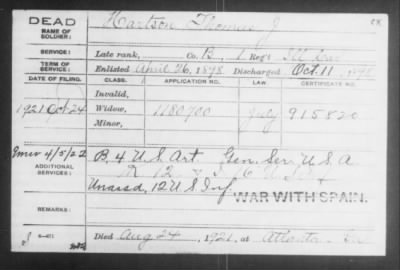 DEAD
NAME OF SOLDIER:
Hartson Thomas J
SERVICE:
Late rank, Co. B, 1 Reg't Ill Cav
TERM OF SERVICE:
Enlisted April 26, 1898. Discharged Oct. 11, 1898
DATE OF FILING. CLASS. APPLICATION NO. LAW. CERTIFICATE NO.
Invalid,
1921 Oct 24 Widow, 1180700 July 915820
Minor,
4/5/22 B. 4 U S Art. Gen. Ser. U S A
ADDITIONAL SERVICES:
Unassd, 12 U S Inf
WAR WITH SPAIN.
REMARKS:
Died Aug 24, 1921, at Atlanta